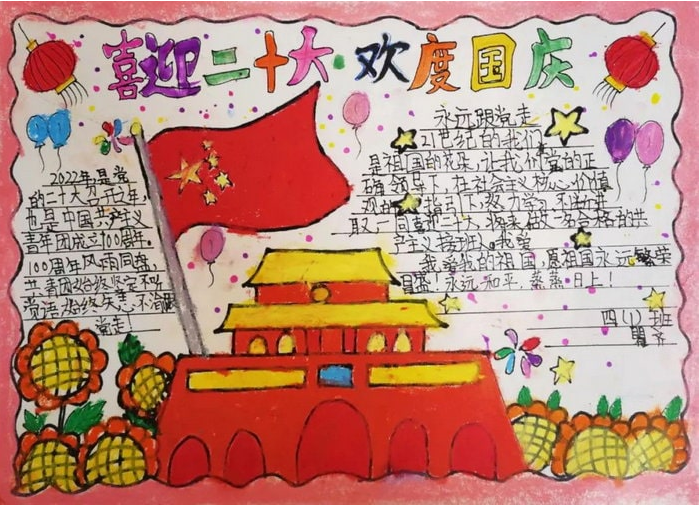 喜迎二十大·欢度国庆
2022年是党
的二十大召开之年,
也是中国共产主义
青年团成立100周年.
100周年风雨同舟,
共青团始终坚定不
党话,始终矢志不渝跟
党走!
永远跟党走
21世纪的我们
是祖国的花朵,让我们党的正
确领导下,在社会主义核心价值
观的指引下,努力学习,不断进
取,一同喜迎二十大,将来做一名合格的共
产主义接班人。我爱
我爱我的祖国,愿祖国永远繁荣
昌盛!永远和平,蒸蒸日上!
四(1)班